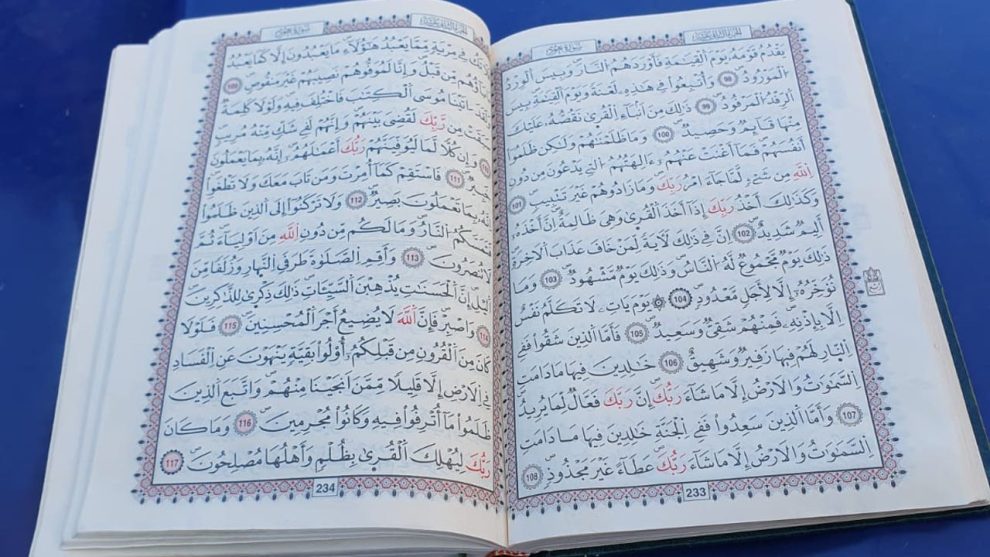 سورة هود
الجزء الثاني عشر
يقدم قومه يوم القيمة فأوردهم النار وبيس الورد
المورود 98 وأتبعوا في هذه لعنة ويوم القيمة بيس
الرفد المرفود 99 ذلك من أنباء القرى نقصه عليك
منها قايم وحصيد 100 وما ظلمنهم ولكن ظلموا
أنفسهم فما أغنت عنهم ءالهتهم التي يدعون من دون
الله من شيء لما جاء امر ربك وما زادوهم غير تتبيب 101
وكذلك أخذ ربك إذا أخذ القرى وهي ظالمة إن أخذه
أليم شديد 102 إن في ذلك لآية لمن خاف عذاب الاخرة
ذلك يوم مجموع له الناس وذلك يوم مشهود 103 وما
نوخره إلا لأجل معدود 104 يوم يات لا تكلم نفس
إلا بإذنه فمنهم شقي وسعيد 105 فأما الذين شقوا ففي
النار لهم فيها زفير وشهيق 106 خلدين فيها ما دامت
السموت والارض إلا ما شاء ربك إن ربك فعال لما يريد
107 وأما الذين سعدوا ففي الجنة خلدين فيها ما دامت
السموت والارض إلا ما شاء ربك عطاء غير مجذوذ 108
233
سورة هود
الجزء الثاني عشر
تك في مرية مما يعبد هؤلاء ما يعبدون إلا كما يعبد
ءاباؤهم من قبل وإنا لموفوهم نصيبهم غير منقوص 109
ولقد ءاتينا موسى الكتب فاختلف فيه ولولا كلمة
سبقت من ربك لقضي بينهم وإنهم لفي شك منه مريب
110 وإن كلا لما ليوفينهم ربك أعملهم إنه بما يعملون
خبير 111 فاستقم كما أمرت ومن تاب معك ولا تطغوا
إنه بما تعملون بصير 112 ولا تركنوا إلى الذين ظلموا
فتمسكم النار وما لكم من دون الله من أولياء ثم
لا تنصرون 113 وأقم الصلوة طرفي النهار وزلفا من
اليل إن الحسنت يذهبن السيئات ذلك ذكرى للذكرين
114 واصبر فإن الله لا يضيع أجر المحسنين 115 فلولا
كان من القرون من قبلكم أولوا بقية ينهون عن الفساد
في الارض إلا قليلا ممن أنجينا منهم واتبع الذين
ظلموا ما أترفوا فيه وكانوا مجرمين 116 وما كان
ربك ليهلك القرى بظلم وأهلها مصلحون 117
234